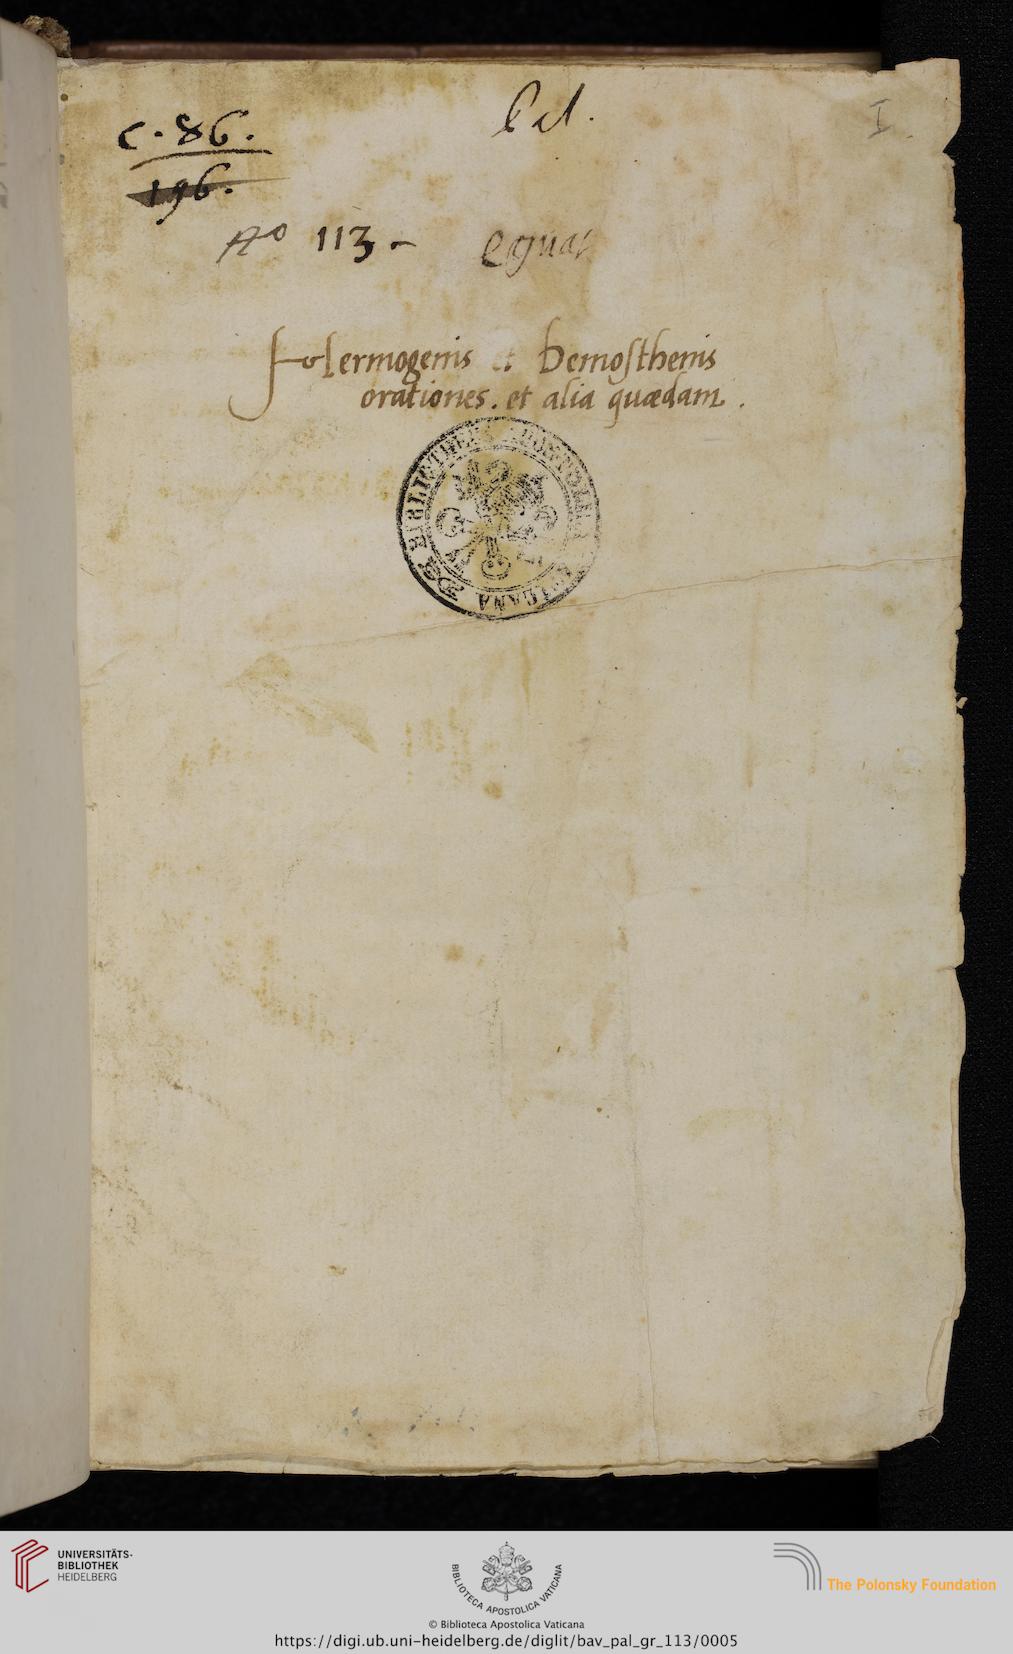 Pal.
I
C. 86.
196.
No 113 -
Hermogenis et Demosthenis
orationes. et alia quædam.
BIBLIOTHECA APOSTOLICA VATICANA
UNIVERSITÄTS-
BIBLIOTHEK
HEIDELBERG
BIBLIOTECA APOSTOLICA VATICANA
The Polonsky Foundation
© Biblioteca Apostolica Vaticana
https://digi.ub.uni-heidelberg.de/diglit/bav_pal_gr_113/0005